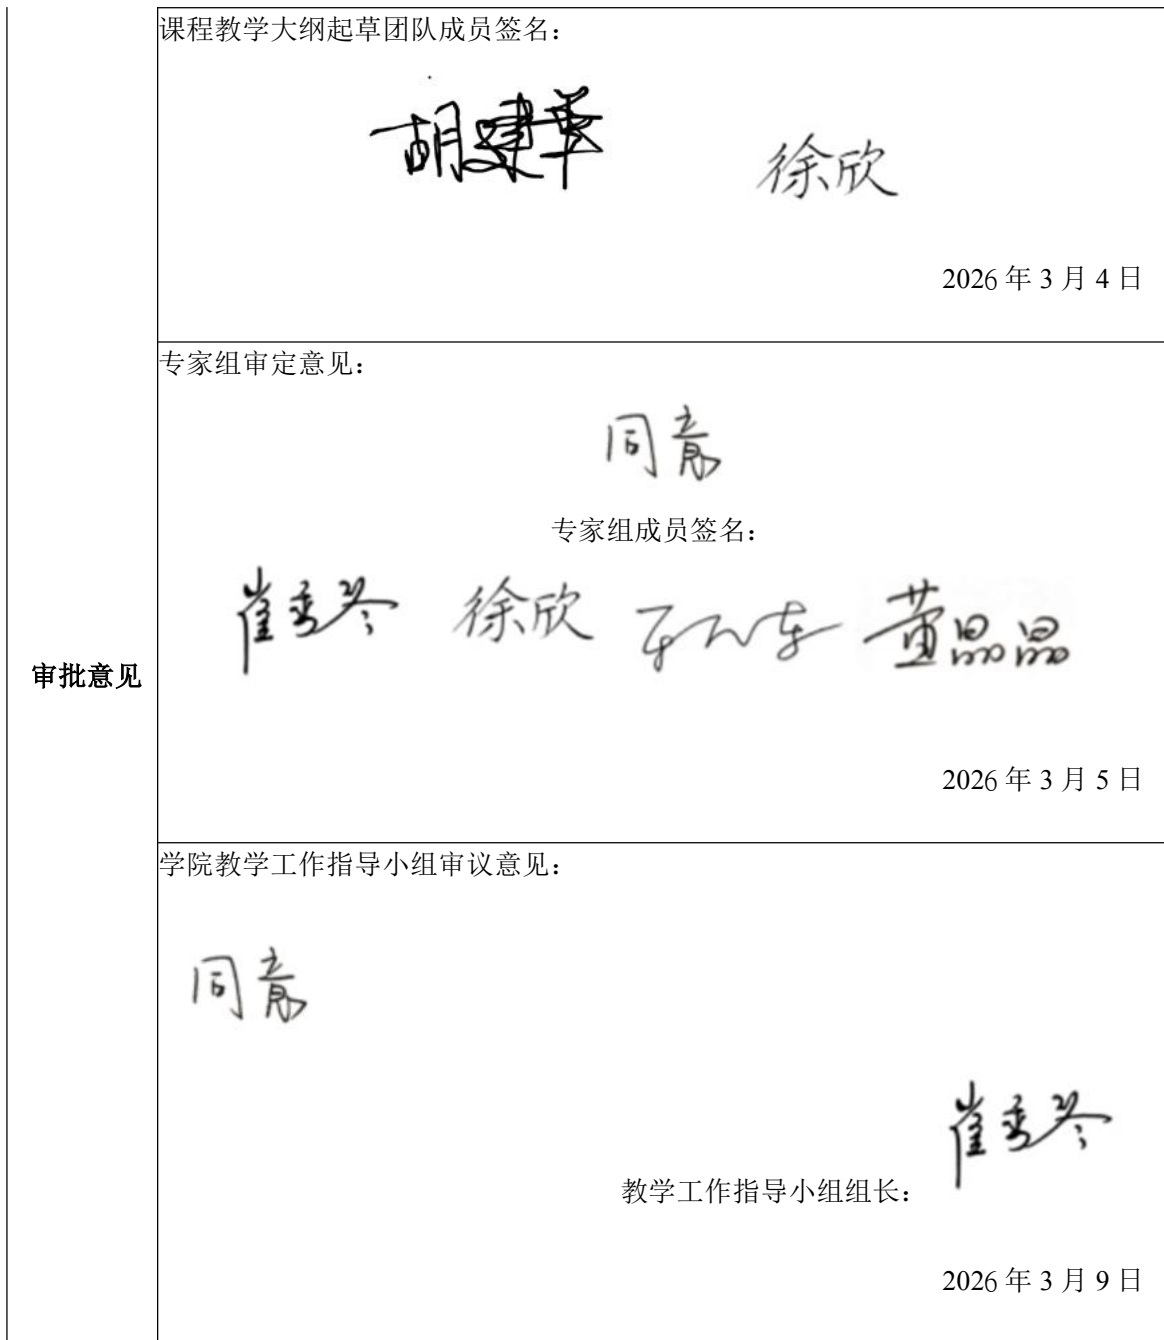 课程教学大纲起草团队成员签名：
胡建华 徐欣
2026 年 3 月 4 日
专家组审定意见：
同意
专家组成员签名：
崔秀琴 徐欣 黄晶晶
审批意见
2026 年 3 月 5 日
学院教学工作指导小组审议意见：
同意
崔秀琴
教学工作指导小组组长：
2026 年 3 月 9 日